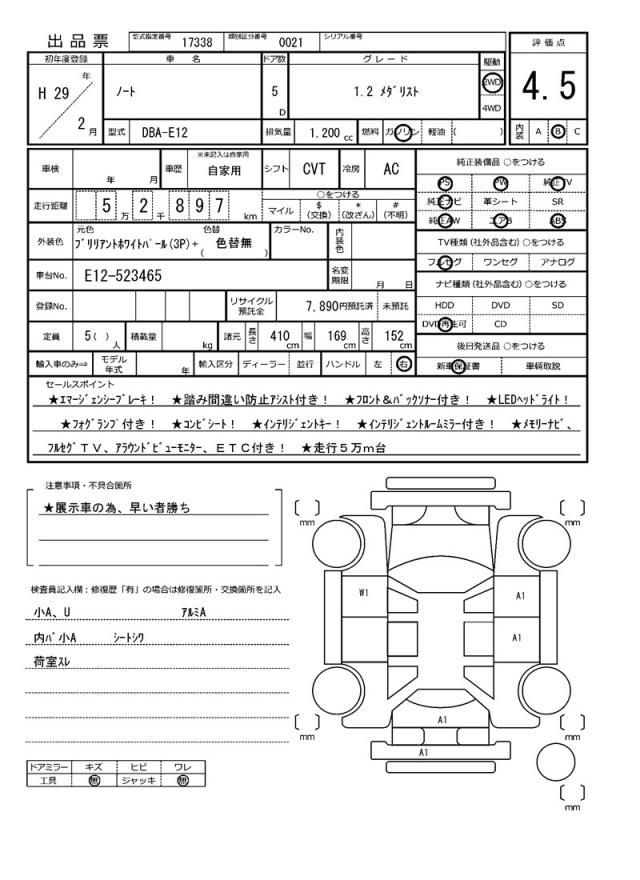 出品票 型式指定番号 17338 類別区分番号 0021 シリアル番号
評価点
4.5
内装 A B C
初年度登録 車名 ドア数 グレード 駆動
H 29 年 2 月 ノート 5 D 1.2 メダリスト 2WD 4WD
型式 DBA-E12 排気量 1.200 cc 燃料 ガソリン 軽油 ( )
車検 年 月 車歴 ※未記入は自家用 自家用 シフト CVT 冷房 AC
走行距離 5 万 2 千 8 9 7 km
○をつける
マイル $ (交換) * (改ざん) # (不明)
外装色 元色 色替
ブリリアントホワイトパール(3P)+ ( 色替無 ) カラーNo. 内装色
車台No. E12-523465 名変期限 月 日
登録No. リサイクル預託金 7,890円預託済 未預託
定員 5( )人 積載量 kg 諸元 長さ 410 cm 幅 169 cm 高さ 152 cm
輸入車のみ⇒ モデル年式 年 輸入区分 ディーラー 並行 ハンドル 左 右
純正装備品 ○をつける
PS PW 純正TV
純正ナビ 革シート SR
純正AW エアB ABS
TV種類 (社外品含む) ○をつける
フルセグ ワンセグ アナログ
ナビ種類 (社外品含む) ○をつける
HDD DVD SD
DVD再生可 CD
後日発送品 ○をつける
新車保証書 車輌取説
セールスポイント
★エマージェンシーブレーキ! ★踏み間違い防止アシスト付き! ★フロント&バックソナー付き! ★LEDヘッドライト!
★フォグランプ付き! ★コンビシート! ★インテリジェントキー! ★インテリジェントルームミラー付き! ★メモリーナビ、
フルセグTV、アラウンドビューモニター、ETC付き! ★走行5万m台
注意事項・不具合箇所
★展示車の為、早い者勝ち
検査員記入欄:修復歴「有」の場合は修復箇所・交換箇所を記入
小A、U アルミA
内バ小A シートシワ
荷室スレ
ドアミラー キズ ヒビ ワレ
工具 無 ジャッキ 無
mm mm
W1 A1
A1
A1
mm mm
A1
mm